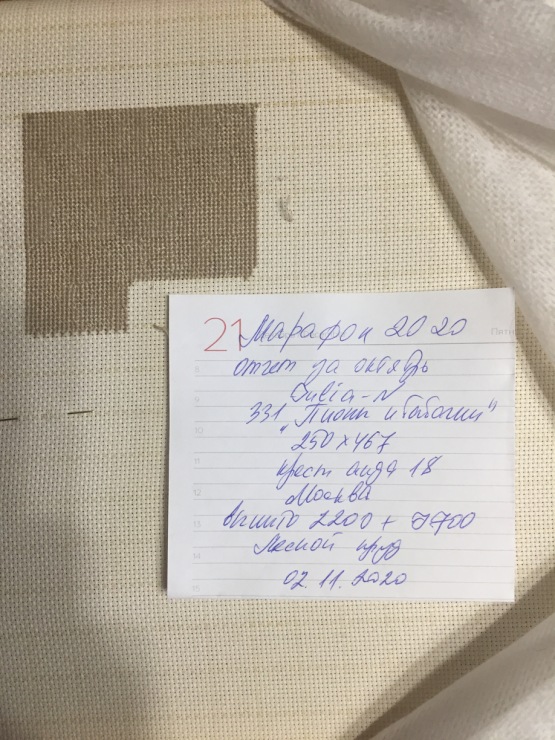 21 Марафон 2020
отчет за октябрь
Julia-N
331 "Пионы и бабочки"
250 x 467
крест аида 18
Москва
вышито 2200 + 7700
Лесной пруд
02.11.2020
8
9
10
11
12
13
14
15